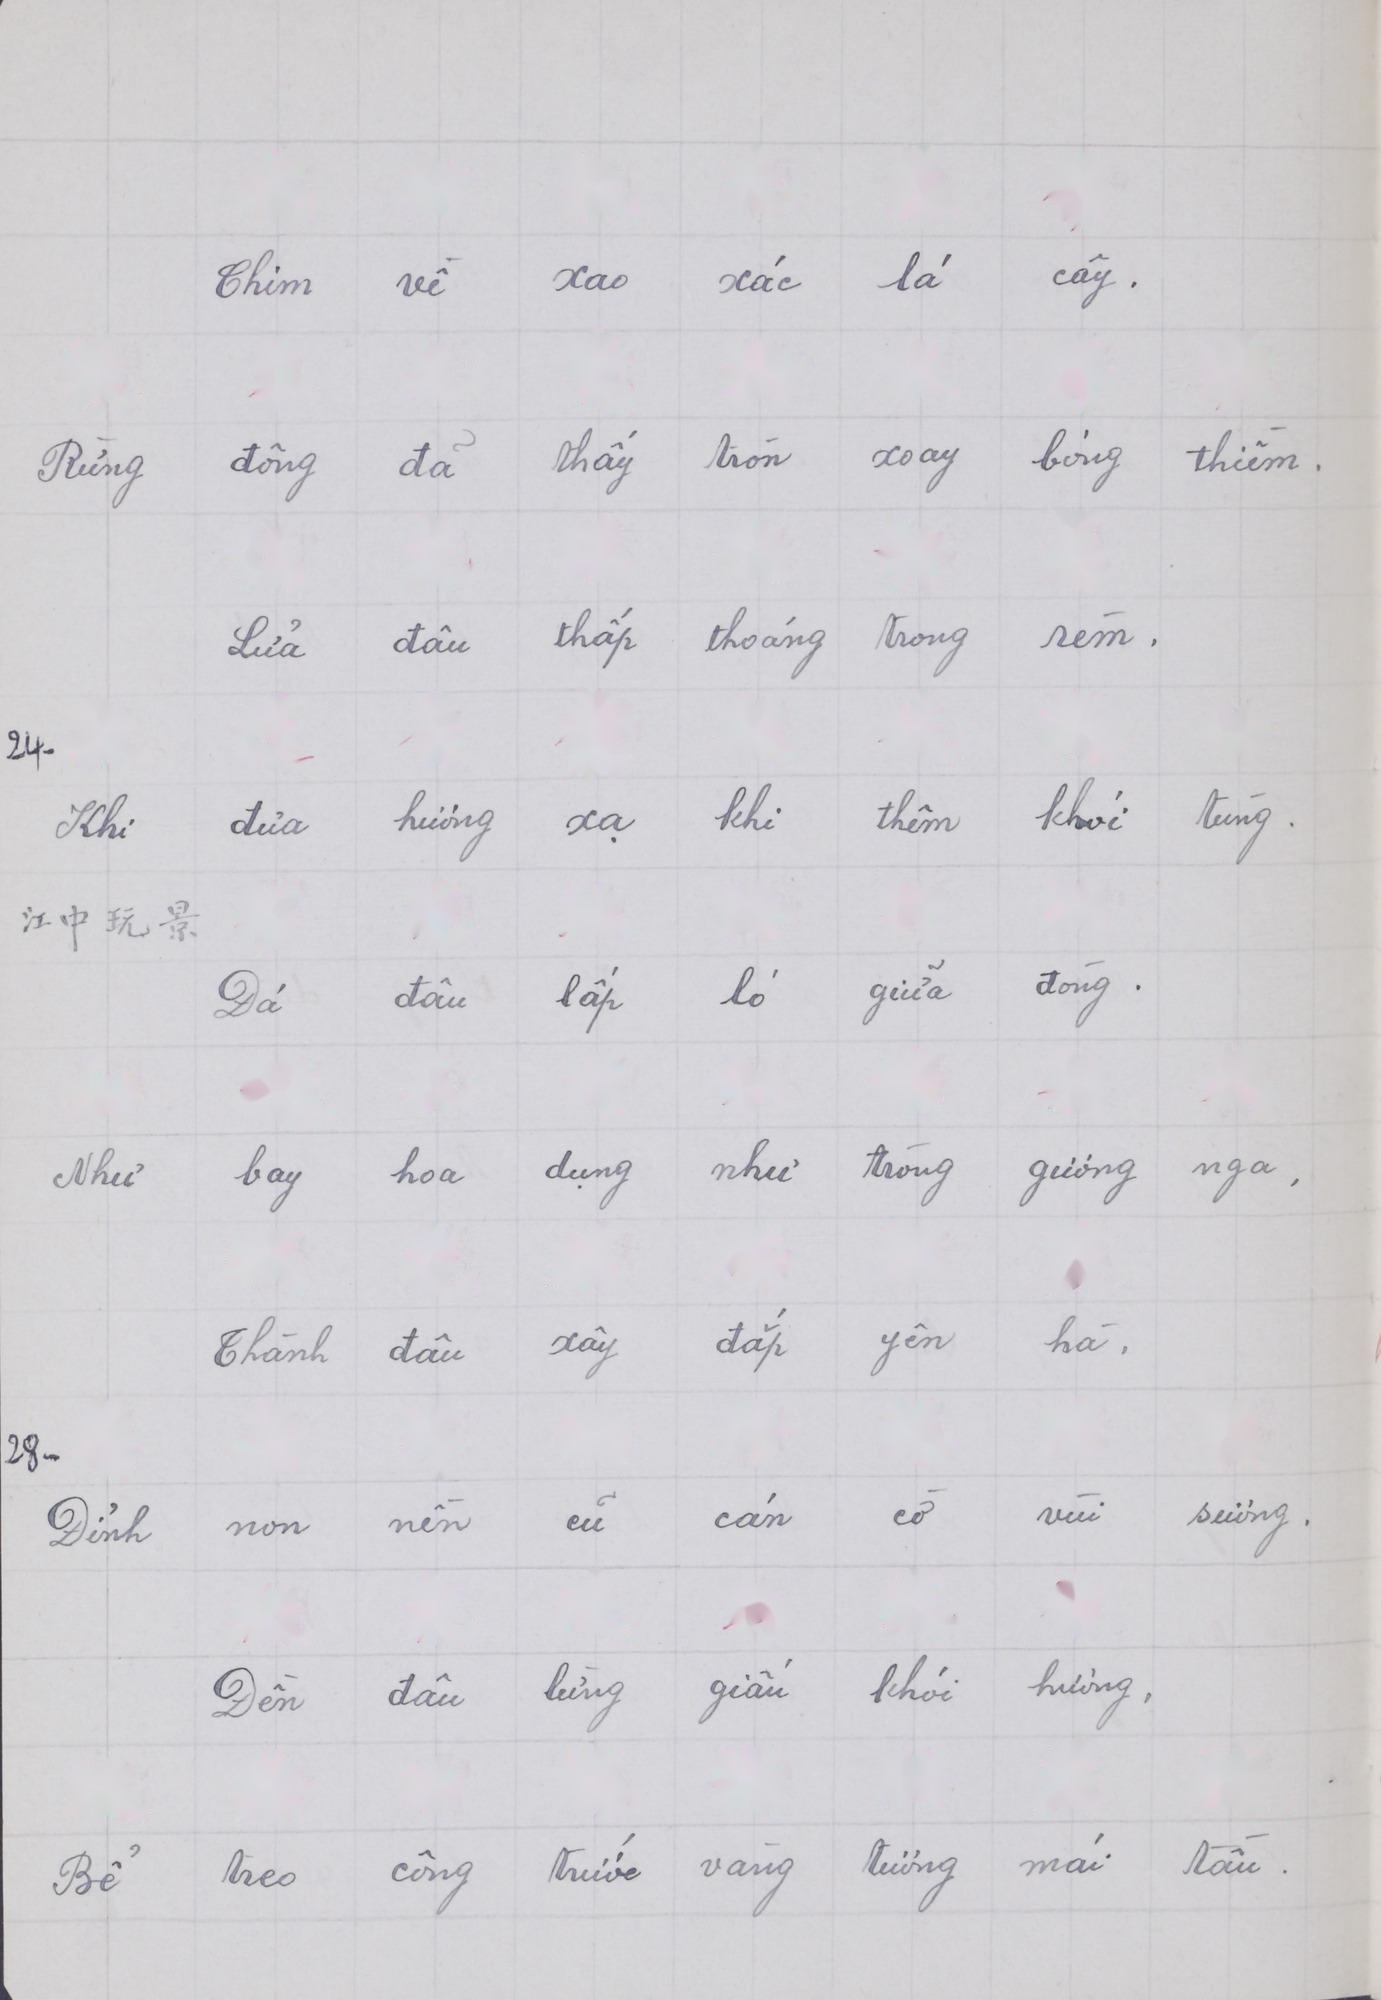 Chim về xao xác lá cây.
Rừng đông đã thấy tròn xoay bóng thiềm.
Lửa đâu thấp thoáng trong rèm.
24-
Khi đưa hương xạ khi thêm khói tùng.
江中玩景
Đá đâu lấp ló giữa đòng.
Như bay hoa dụng như trồng gương nga,
Thành đâu xây đắp yên hà.
28-
Đỉnh non nền cũ cán cờ vùi sương.
Đền đâu lừng giấu khói hương,
Bể treo công trước vàng tương mái tầu.